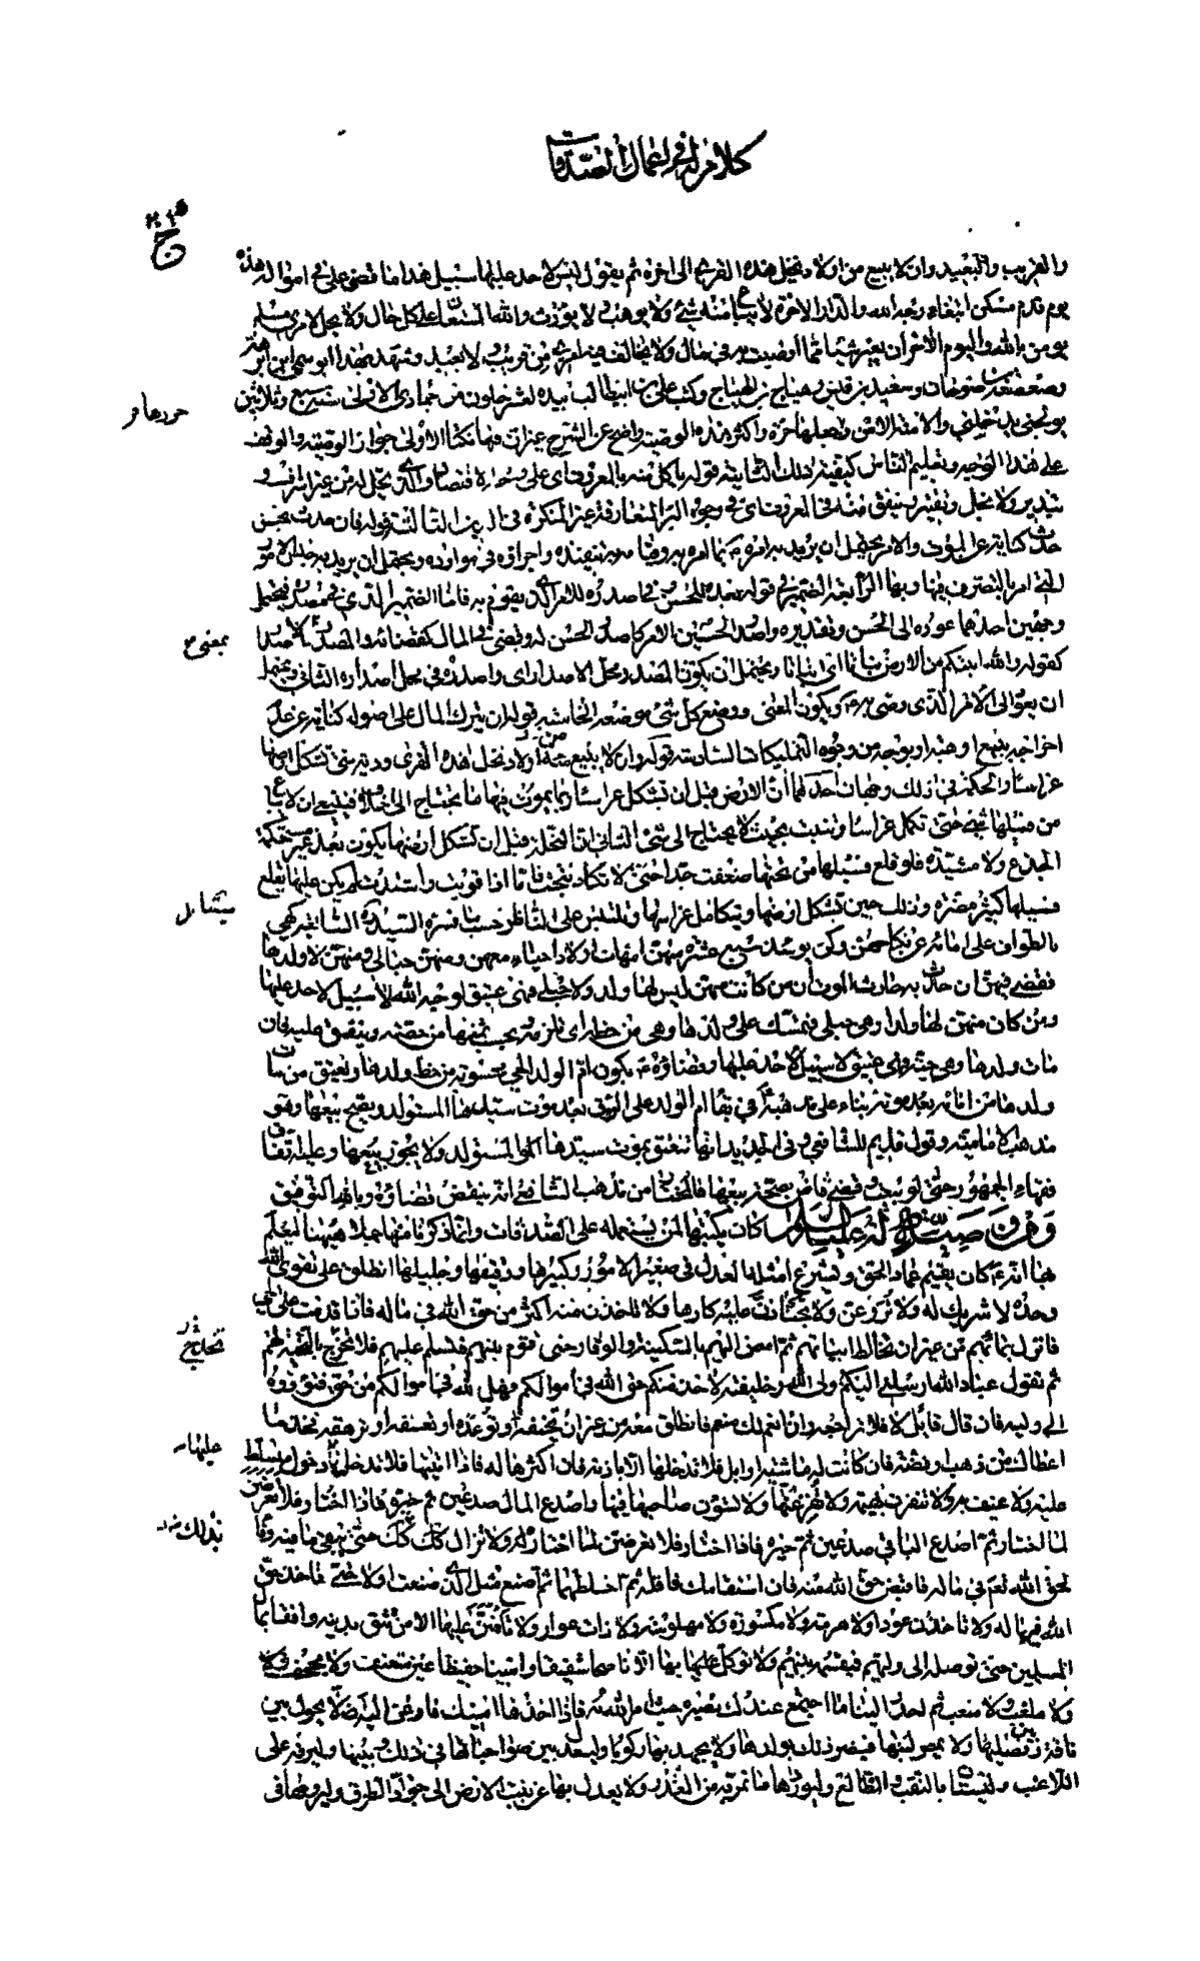 كلامه في اعمال الصدقات
والقريب والبعيد وان لا يبيع من اولاد نخيل هذه القرى الى اخره ثم يقول ليس لاحد عليها سبيل هذا ما قضى على في امواله هذه
يوم قدم مسكن ابتغاء وجه الله والدار الاخرة لا يباع منه شئ ولا يوهب ولا يورث والله المستعان على كل حال ولا يحل لامرئ مسلم
يومن بالله واليوم الاخر ان يغير شيئا مما أوصيت به في مال ولا يخالف فيه امرى من قريب ولا بعيد وشهد بهذا ابو سمى ابن ابرهة
وصعصعة بن صوحان وسعيد بن قيس وهياج بن الهياج وكتب على بن ابيطالب بيده لعشر خلون من جمادى الاولى سنة سبع وثلاثين
يولجنى يدخلنى والامنة الامن واكثر هذه الوصية واضح عن الشرح غير ان فيها نكتا الاولى جواز الوصية والوقف
على هذا الوجه وتعليم الناس كيفية ذلك الثانية قوله ياكل منه بالمعروف اى على وجه
تبذير ولا بخل وتقتير وينفق منه في المعروف اى في وجوه البر المتعارفة غير المنكرة في الدين الثالثة قوله فان حدث بحسن
حدث كناية عن الموت والامر يحتمل ان يريد به امره بما امر به واجراؤه في موارده ويحتمل ان يريد به
الرابعة الضمير في قوله بعده للحسن في اصدره للامر الذى يقوم به فاما الضمير الذى في مصدره فيحتمل
وجهين احدهما عوده الى الحسن وتقديره واصدر الحسين الامر كاصدار الحسن له وقضى في المال كقضائه والمصدر
كقوله والله انبتكم من الارض نباتا اى انباتا ويحتمل ان يكون المصدر محل الاصدار اى واصدره في محل اصداره الثانى ويحتمل
ان يعود الى الامر الذى وصى به ويكون المعنى ووضع كل شئ موضعه الخامسة قوله ان يترك المال على اصوله كناية عن عدم
اخراجه ببيع او هبة او بوجه من وجوه التمليكات السادسة قوله وان لا يبيع من اولاد نخل هذه القرى ودية حتى تشكل ارضها
غراسا والحكمة في ذلك وجهان احدهما أن الارض قبل ان تشكل غراسا ربما يموت فيها ما يحتاج الى اخلافه فينبغي ان لا يباع
من فسيلها شئ حتى تكمل غراسا وتثبت بحيث لا يحتاج الى شئ الثانى ان النخلة قبل ان تشكل ارضها يكون بعد غير مستحكمة
الجذع ولا مشتدة فلو قلع فسيلها من تحتها ضعفت جدا حتى لا تكاد تنجب فاما اذا قويت واشتدت لم يكن عليها بقلع
فسيلها كثير مضرة وذلك حين تشكل ارضها ويتكامل غراسها ويلتبس على الناظر حسب ما فسره السيد السابعة كنى
بالطواف على امائه عن نكاحهن وكن يومئذ سبع عشرة منهن امهات اولاد احياء معهن ومنهن حبالى ومنهن لا ولد لها
فقضى فيهن ان حدث به حادث الموت ان من كانت منهن ليس لها ولد ولا حبلى فهى عتيق لوجه الله لا سبيل لاحد عليها
ومن كان منهن لها ولد او هى حبلى فتمسك على ولدها وهى من حظه اى تلزمه ويحسب ثمنها من حصته ويعتق عليه فان
مات ولدها وهى حية فهى عتيق لا سبيل لاحد عليها وقضاؤه بكون ام الولد الحى محسوبة من حظ ولدها ويعتق من مات
ولدها من امائه بعد موته بناء على مذهبه في بقاء ام الولد على الرق بعد موت سيدها المستولد ويصح بيعها وهو
مذهب الامامية وقول قديم للشافعي وفي الجديد انها تنعتق بموت سيدها المستولد ولا يجوز بيعها وعليه اتفاق
فقهاء الجمهور حتى لو قضى قاض بصحة بيعها فالمختار من مذهب الشافعي انه ينقض قضاؤه وبالله التوفيق
ومن وصية له عليه السلام كان يكتبها لمن يستعمله على الصدقات وانما ذكرنا منها جملا ههنا ليعلم
بها انه كان يقيم عماد الحق ويشرع امثلة العدل في صغير الامور وكبيرها ودقيقها وجليلها انطلق على تقوى الله
وحده لا شريك له ولا تروعن مسلما ولا تجتازن عليه كارها ولا تاخذن منه اكثر من حق الله في ماله فاذا قدمت على الحى
فانزل بمائهم من غير ان تخالط ابياتهم ثم امض اليهم بالسكينة والوقار حتى تقوم بينهم فتسلم عليهم فلا تخدج بالتحية لهم
ثم تقول عباد الله ارسلنى اليكم ولى الله وخليفته لاخذ منكم حق الله في اموالكم فهل لله في اموالكم من حق فتؤدوه
الى وليه فان قال قائل لا فلا تراجعه وان انعم لك منعم فانطلق معه من غير ان تخيفه او توعده او تعسفه او ترهقه فخذ ما
اعطاك من ذهب او فضة فان كانت له ماشية او ابل فلا تدخلها الا باذنه فان اكثرها له فاذا اتيتها فلا تدخلها دخول متسلط
عليه ولا عنيف به ولا تنفرن بهيمة ولا تفزعنها ولا تسوءن صاحبها فيها واصدع المال صدعين ثم خيره فاذا اختار فلا تعرضن
لما اختار ثم اصدع الباقي صدعين ثم خيره فاذا اختار فلا تعرضن لما اختاره ولا تزال كذلك حتى يبقى ما فيه وفاء
لحق الله في ماله فاقبض حق الله منه فان استقالك فاقله ثم اخلطهما ثم اصنع مثل الذى صنعت اولا حتى تاخذ حق
الله في ماله ولا تاخذن عودا ولا هرمة ولا مكسورة ولا مهلوسة ولا ذات عوار ولا تأمنن عليها الا من تثق بدينه رافقا بمال
المسلمين حتى يوصله الى وليهم فيقسمه بينهم ولا توكل بها الا ناصحا شفيقا وامينا حفيظا غير معنف ولا مجحف
ولا ملغب ولا متعب ثم احدر الينا ما اجتمع عندك نصيره حيث امر الله به فاذا اخذها امينك فاوعز اليه الا يحول بين
ناقة وبين فصيلها ولا يمصر لبنها فيضر ذلك بولدها ولا يجهدنها ركوبا وليعدل بين صواحباتها في ذلك وبينها وليرفه على
اللاغب وليستأن بالنقب والظالع وليوردها ما تمر به من الغدر ولا يعدل بها عن نبت الارض الى جواد الطرق وليروحها في
بمعنى
عليها
بذلك